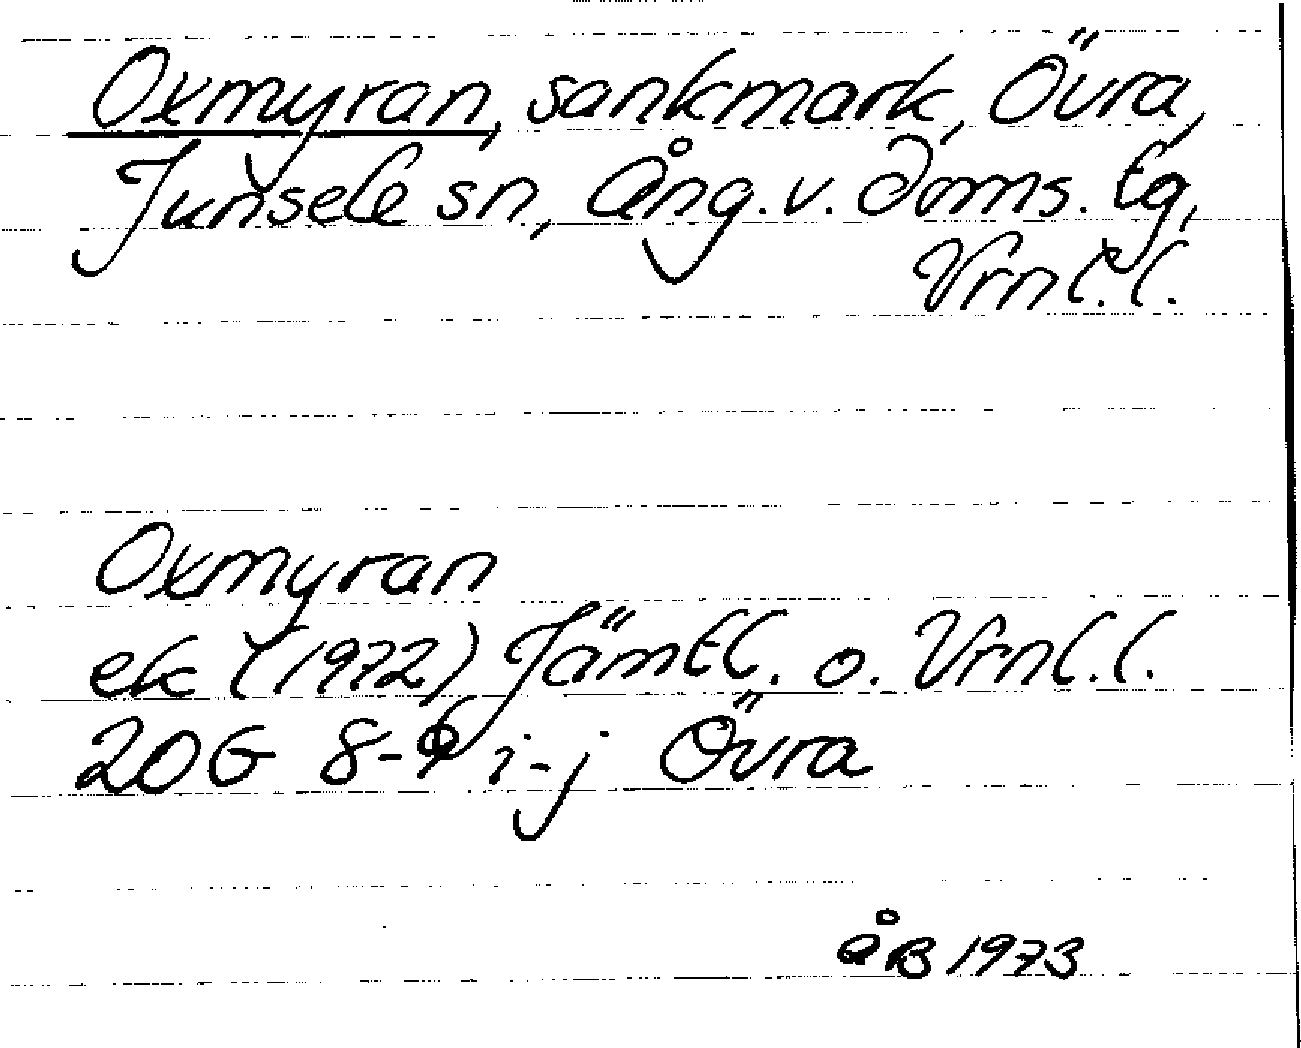 Oxmyran, sankmark, Övra,
Junsele sn, Ång. v. doms. tg,
Vrnl. l.
Oxmyran
ek (1972) Jämtl. o. Vrnl. l.
20G 8-9 i-j Övra
åB 1973